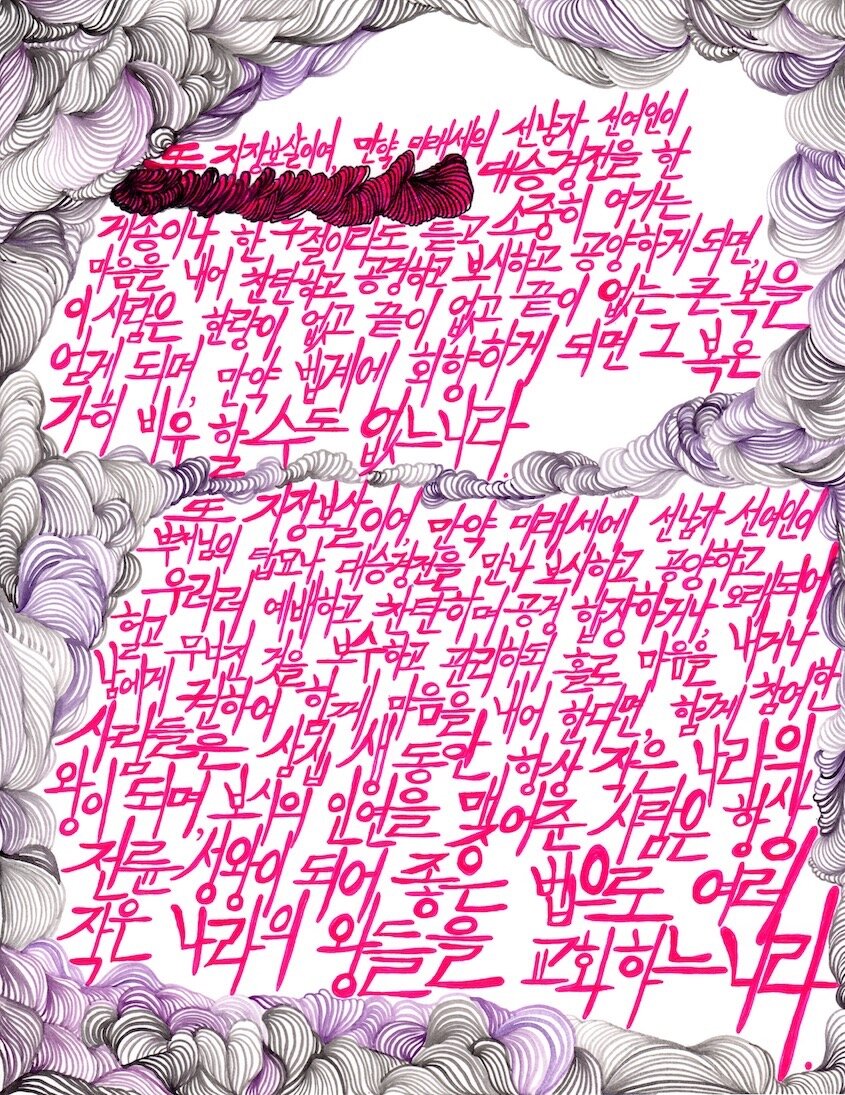 또 지장보살이여, 만약 미래세의 선남자 선여인이
대승경전을 한
게송이나 한 구절이라도 듣고 소중히 여기는
마음을 내어 찬탄하고 공경하고 보시하고 공양하게 되면,
이 사람은 한량이 없고 끝이 없고 끝이 없는 큰 복을
얻게 되며, 만약 법계에 회향하게 되면 그 복은
가히 비유 할 수도 없느니라.
또 지장보살이여, 만약 미래세에 선남자 선여인이
부처님의 탑묘나 대승경전을 만나 보시하고 공양하고
우러러 예배하고 찬탄하며 공경 합장하거나, 오래되어
헐고 무너진 것을 보수하고 관리하되 홀로 마음을 내거나
남에게 권하여 함께 마음을 내어 한다면, 함께 참여한
사람들은 삼십 생 동안 항상 작은 나라의
왕이 되며, 보시의 인연을 맺어준 사람은 항상
전륜성왕이 되어 좋은 법으로 여러
작은 나라의 왕들을 교화하느니라.